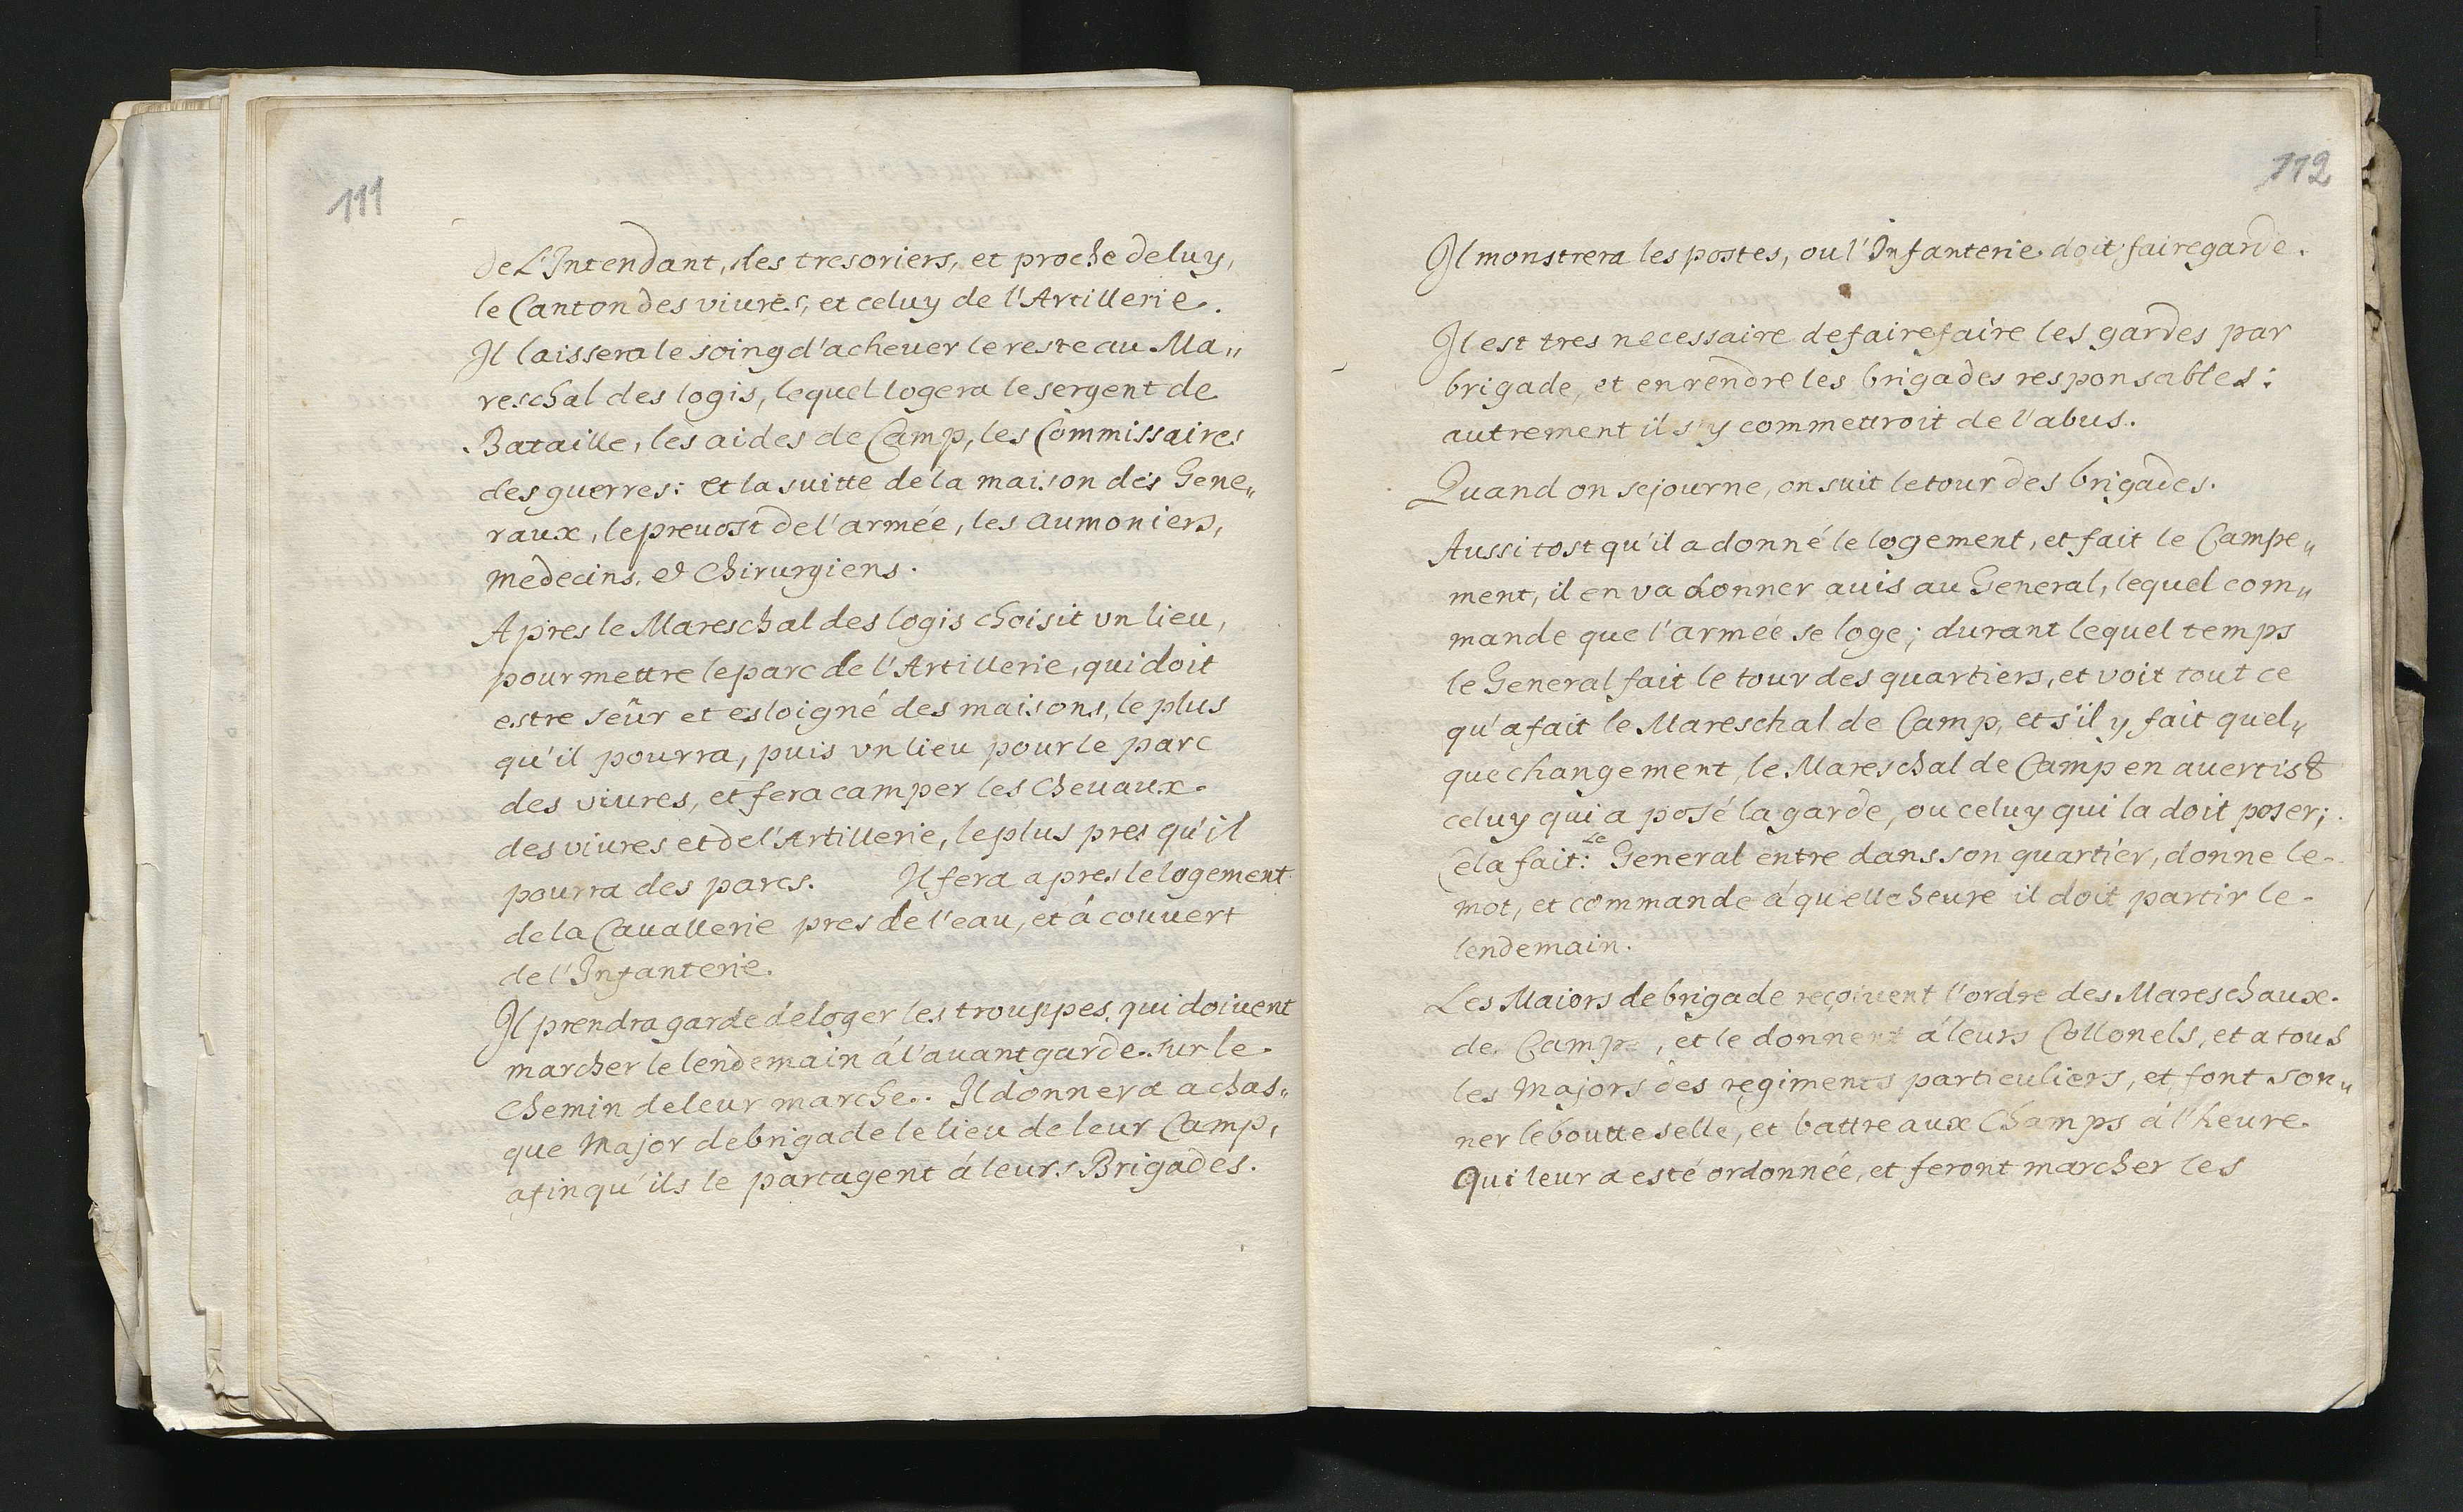 111
de L'Intendant, des tresoriers, et proche de luy,
le Canton des viures, et celuy de l'Artillerie.
Il laissera le soing d'acheuer le reste au Ma„
reschal des logis, lequel logera le sergent de
Bataille, les aides de Camp, les Commissaires
des guerres: et la suitte de la maison des Gene„
raux, le preuost de l'armée, les aumoniers,
medecins, et Chirurgiens.
Apres le Mareschal des logis choisit vn lieu,
pour mettre le parc de l'Artillerie, qui doit
estre seûr et esloigné des maisons, le plus
qu'il pourra, puis vn lieu pour le parc
des viures, et fera camper les cheuaux
des viures et de l'Artillerie, le plus pres qu'il
pourra des parcs. Il fera apres le logement
de la Cauallerie pres de l'eau, et à couuert
de l'Infanterie.
Il prendra garde de loger les trouppes, qui doiuent
marcher le lendemain à l'auantgarde sur le
chemin de leur marche. Il donnera a chas„
que Major de brigade le lieu de leur Camp,
afin qu'ils le partagent à leurs Brigades.
112
Il monstrera les postes, ou l'Infanterie doit faire garde.
Il est tres necessaire de faire faire les gardes par
brigade, et en rendre les brigades responsables:
autrement il s'y commettroit de l'abus.
Quand on sejourne, on suit le tour des brigades.
Aussi tost qu'il a donné le logement, et fait le Campe„
ment, il en va donner auis au General, lequel com„
mande que l'armée se loge; durant lequel temps
le General fait le tour des quartiers, et voit tout ce
qu'a fait le Mareschal de Camp, et s'il y fait quel„
que changement, le Mareschal de Camp en auertist
celuy qui a posé la garde, ou celuy qui la doit poser;
Cela fait: le General entre dans son quartier, donne le
mot, et commande à quelle heure il doit partir le
lendemain.
Les Maiors de brigade reçoiuent l'ordre des Mareschaux
de Camp, et le donnent à leurs Collonels, et a tous
les Majors des regiments particuliers, et font son„
ner le boutte selle, et battre aux Champs à l'heure
Qui leur a esté ordonnée, et feront marcher les